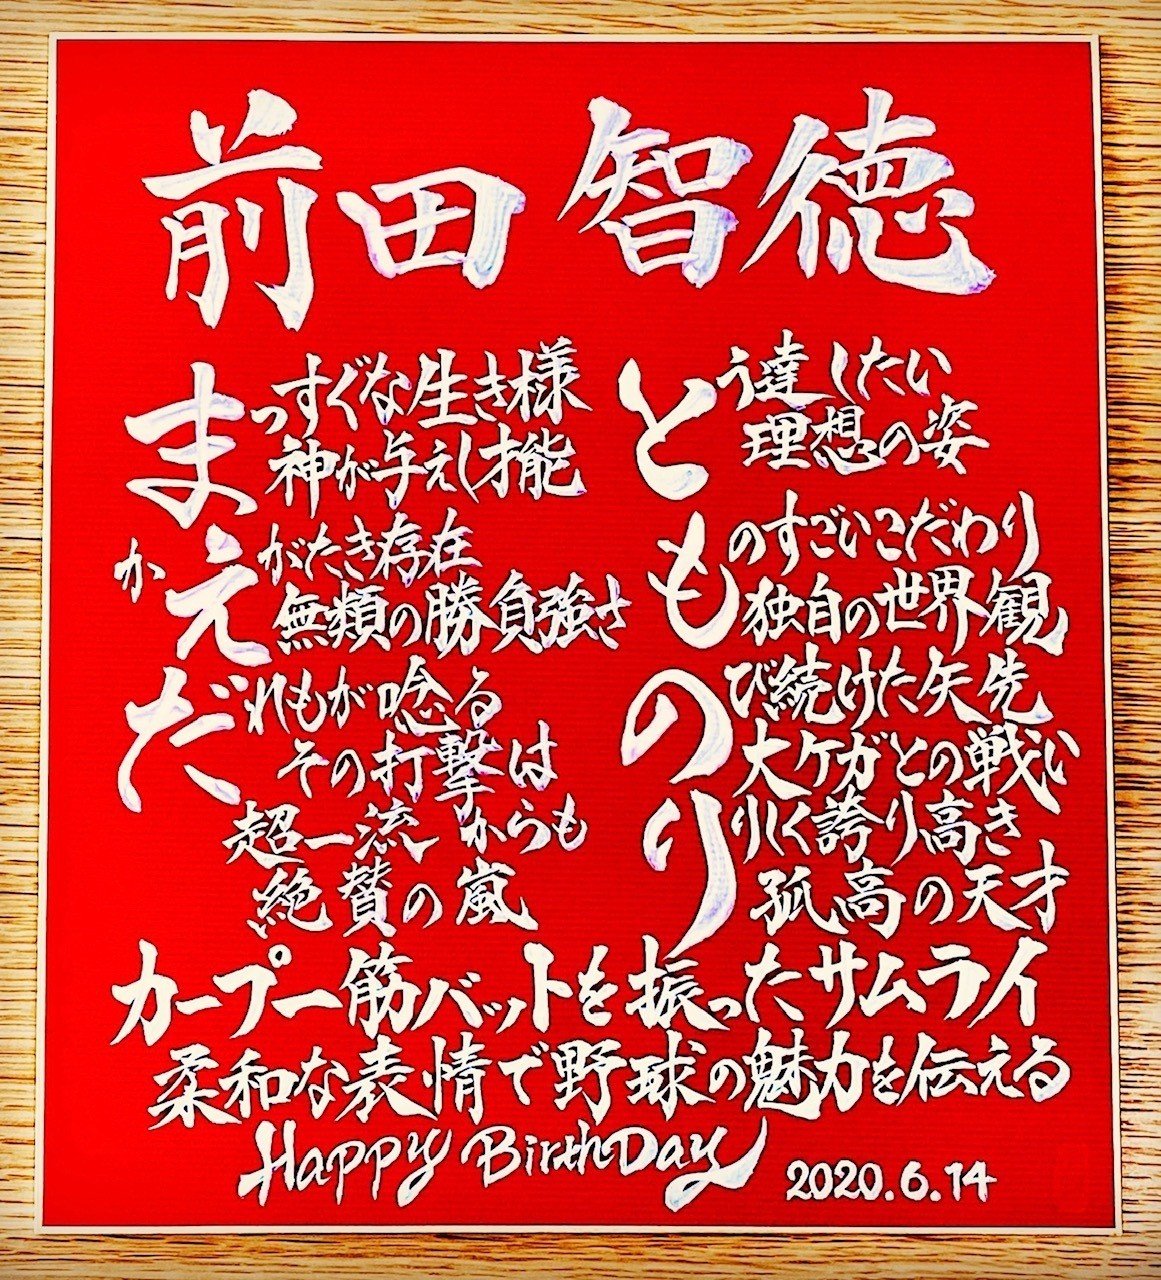 前田智徳
まっすぐな生き様
神が与えし才能
かえがたき存在
無類の勝負強さ
だれもが唸る
その打撃は
超一流からも
絶賛の嵐
とう達したい
理想の姿
ものすごいこだわり
独自の世界観
のび続けた矢先
大ケガとの戦い
りりしく誇り高き
孤高の天才
カープ一筋バットを振ったサムライ
柔和な表情で野球の魅力を伝える
Happy BirthDay
2020.6.14